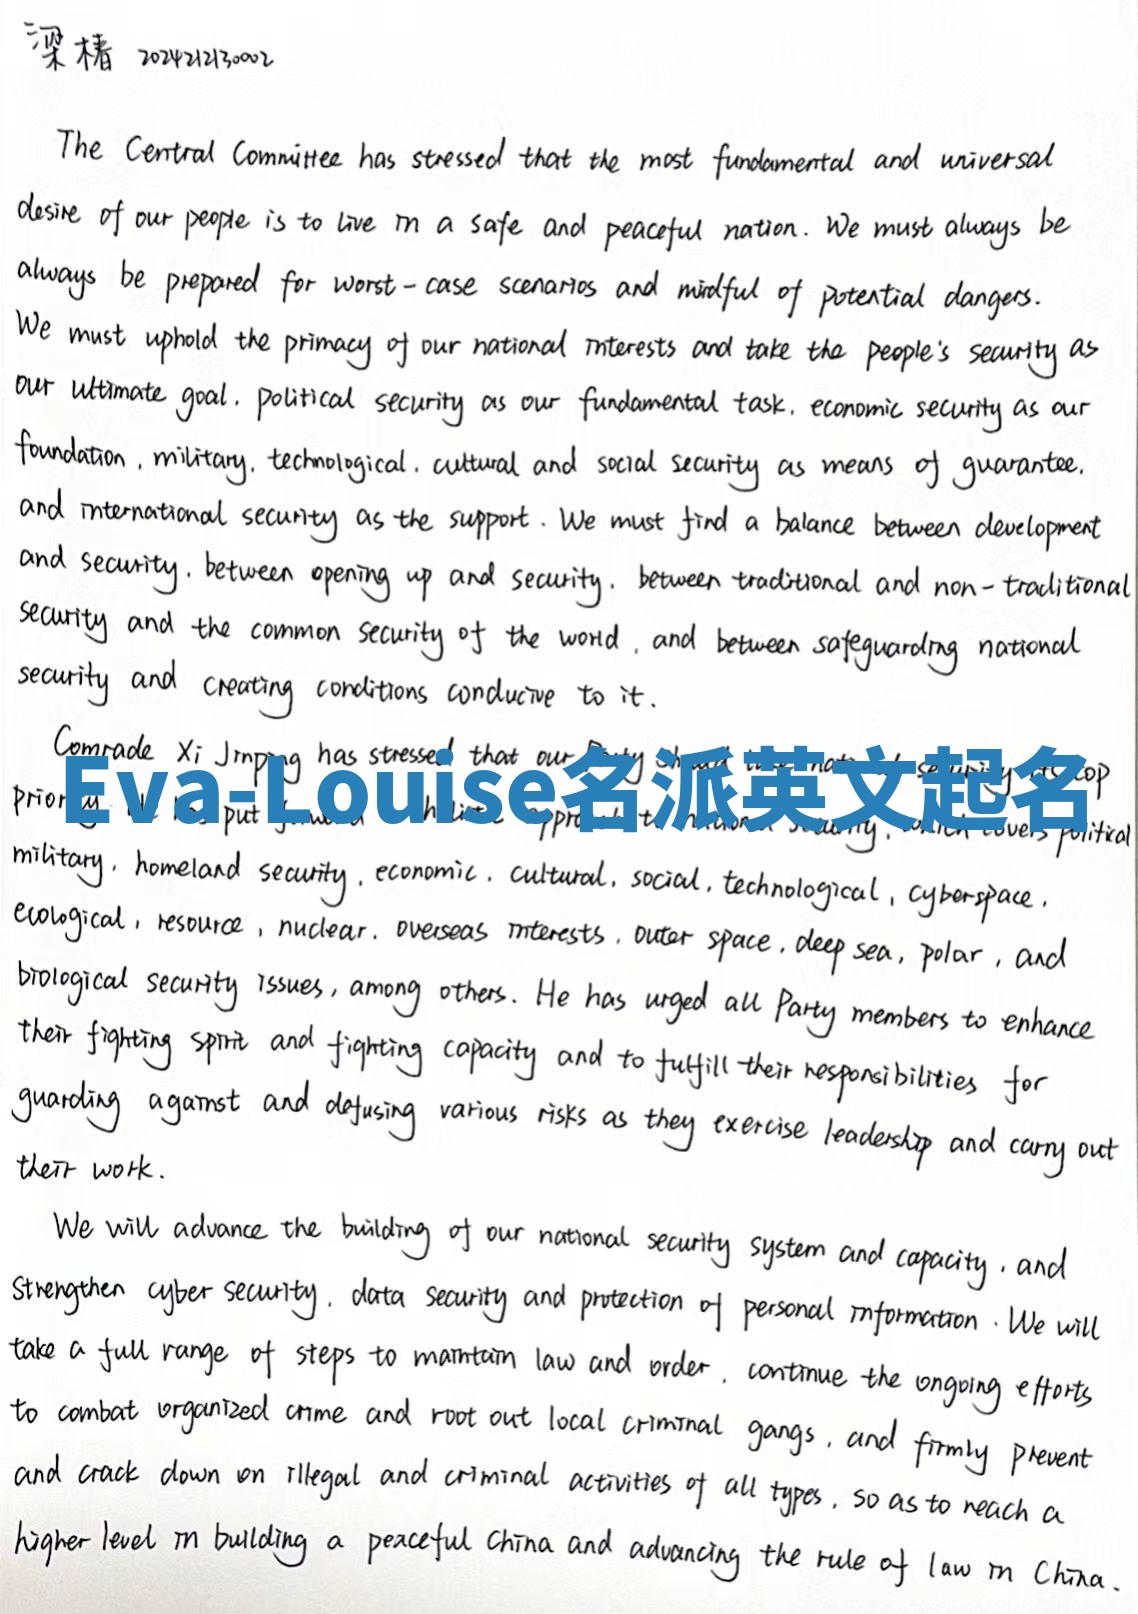 梁椿 2024212130002
The Central Committee has stressed that the most fundamental and universal
desire of our people is to live in a safe and peaceful nation. We must always be
always be prepared for worst-case scenarios and mindful of potential dangers.
We must uphold the primacy of our national interests and take the people's security as
our ultimate goal, political security as our fundamental task, economic security as our
foundation, military, technological, cultural and social security as means of guarantee,
and international security as the support. We must find a balance between development
and security, between opening up and security, between traditional and non-traditional
security and the common security of the world, and between safeguarding national
security and creating conditions conducive to it.
Comrade Xi Jinping has stressed that our Party should national security its top
Eva-Louise名派英文起名
priority. He has put forward holistic approach to national security, which covers political
military, homeland security, economic, cultural, social, technological, cyberspace,
ecological, resource, nuclear, overseas interests, outer space, deep sea, polar, and
biological security issues, among others. He has urged all Party members to enhance
their fighting spirit and fighting capacity and to fulfill their responsibilities for
guarding against and defusing various risks as they exercise leadership and carry out
their work.
We will advance the building of our national security system and capacity, and
strengthen cyber security, data security and protection of personal information. We will
take a full range of steps to maintain law and order, continue the ongoing efforts
to combat organized crime and root out local criminal gangs, and firmly prevent
and crack down on illegal and criminal activities of all types, so as to reach a
higher level in building a peaceful China and advancing the rule of law in China.